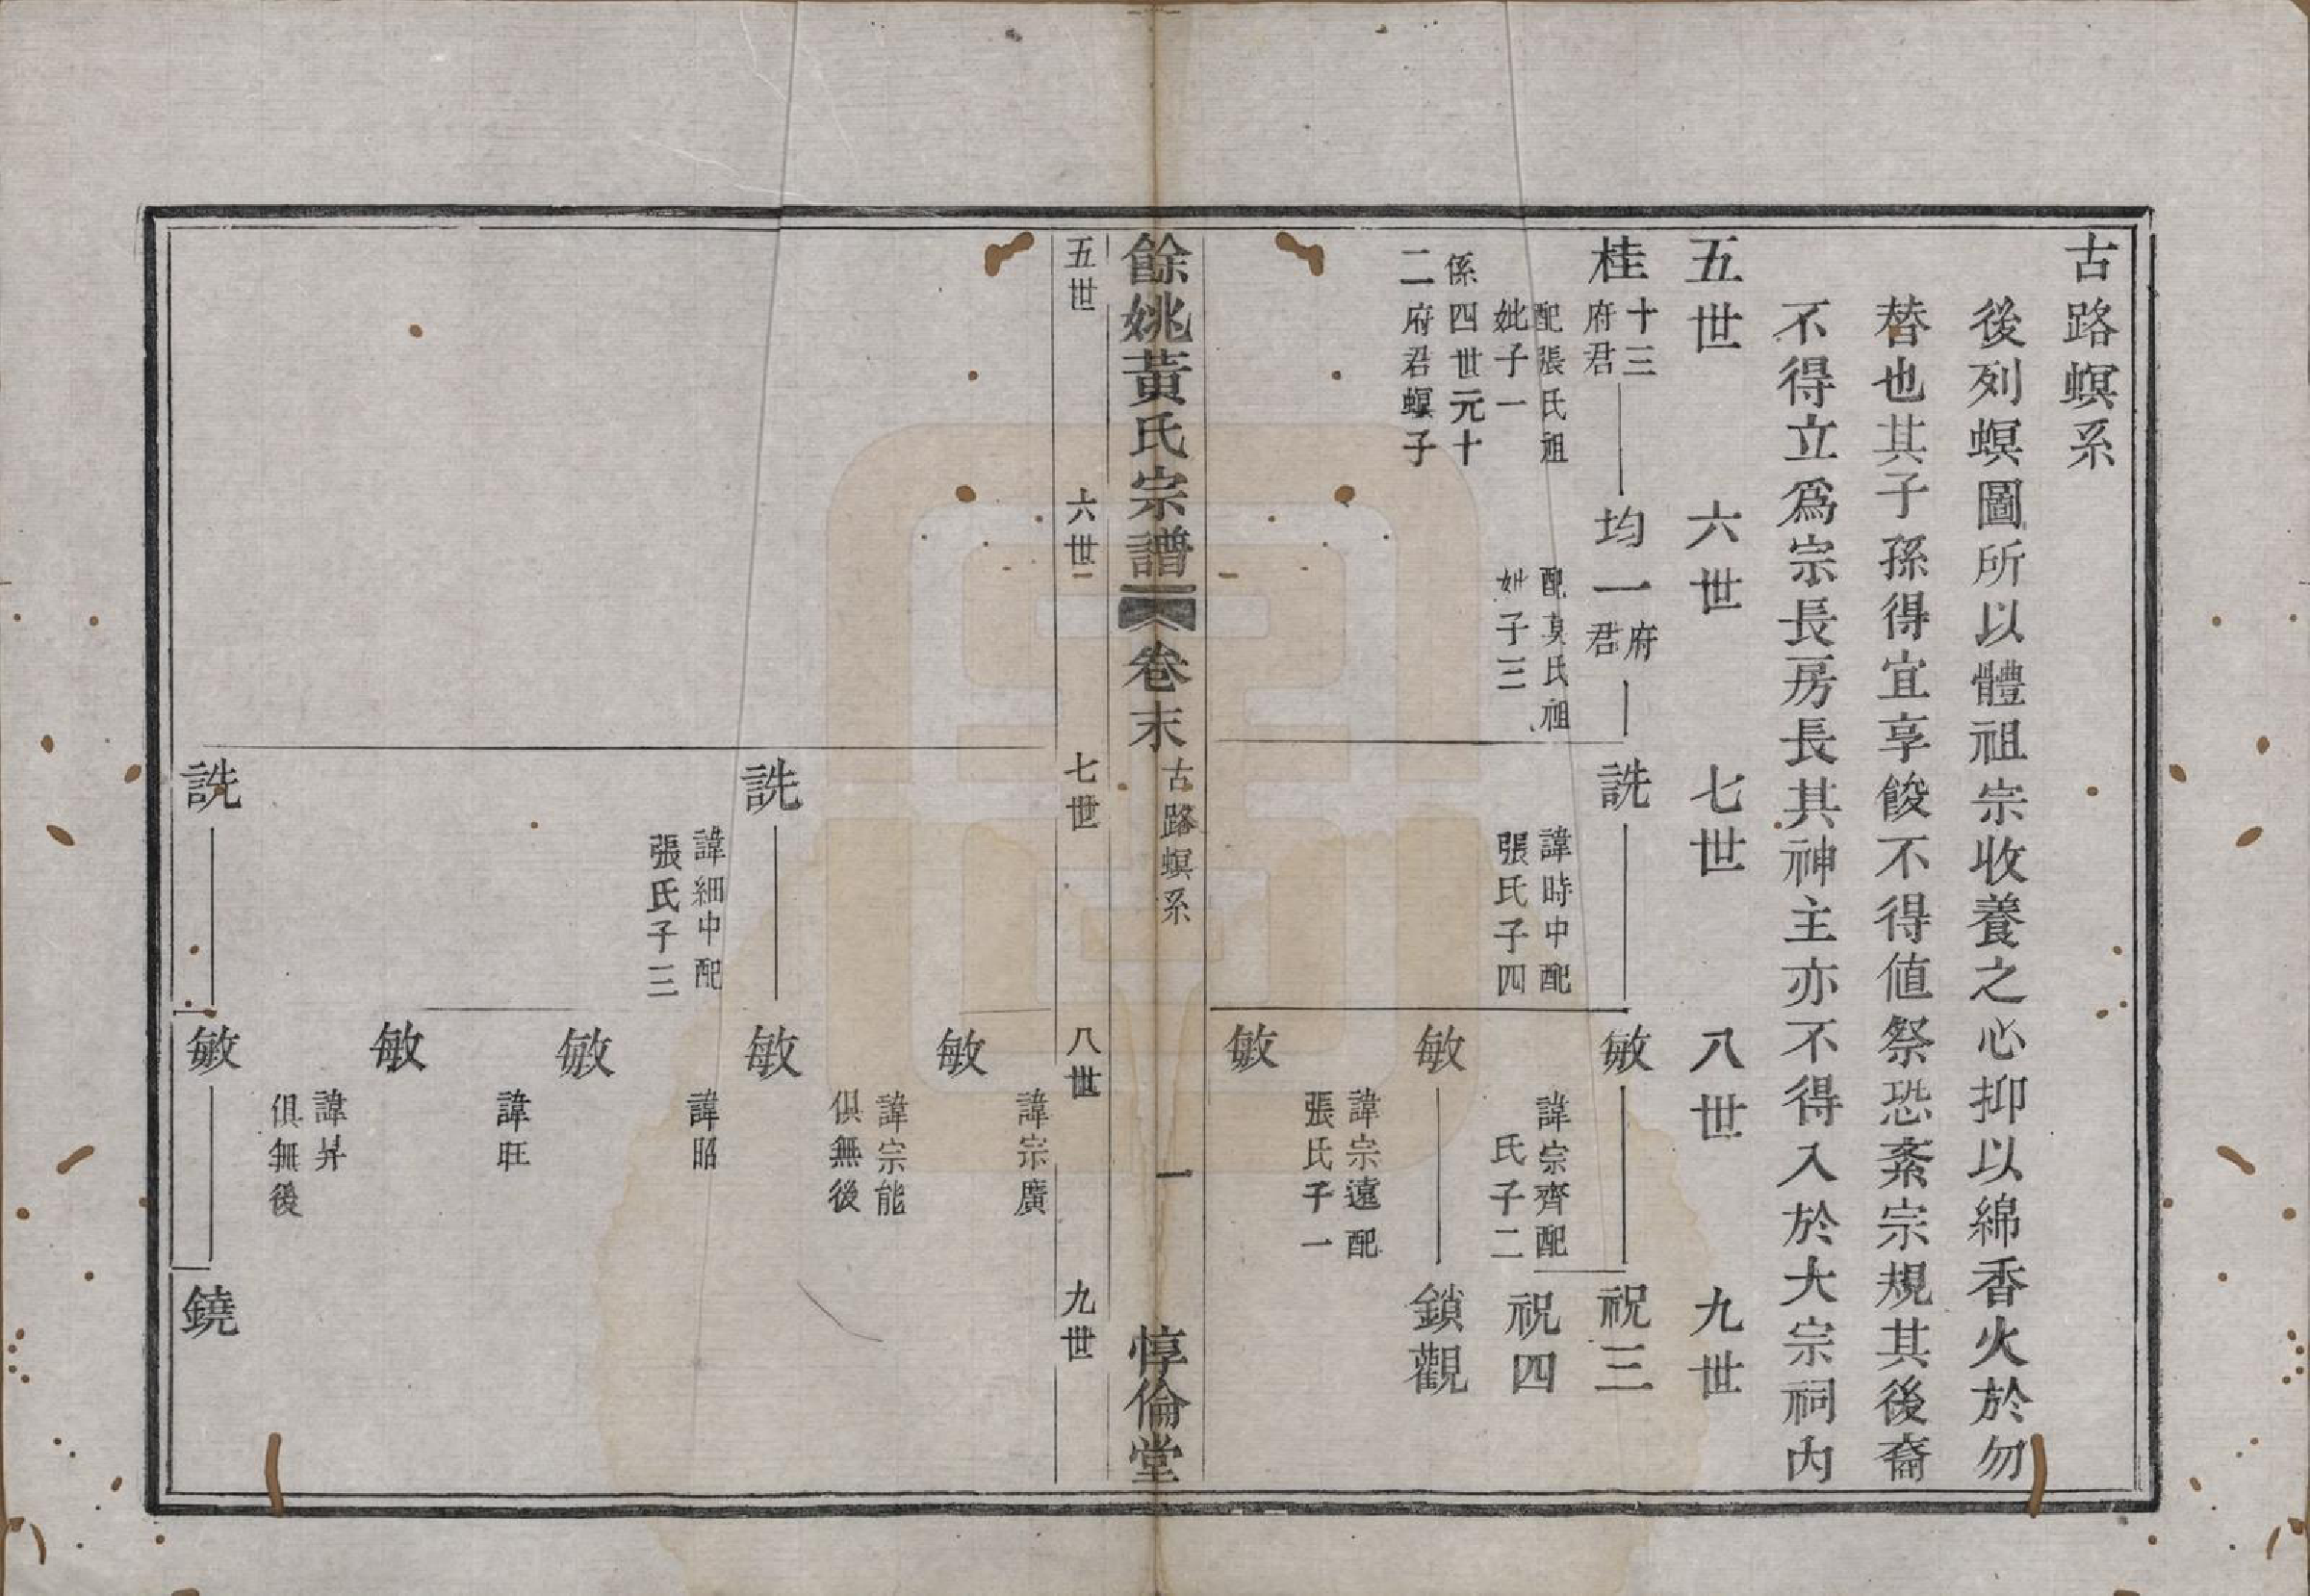 古路螟系
後列螟圖所以體祖宗收養之心抑以綿香火於勿
替也其子孫得宜享餕不得値祭恐紊宗規其後裔
不得立爲宗長房長其神主亦不得入於大宗祠內
五世 六世 七世 八世 九世
桂十三府君 均一府君 詵 敏 祝三
配張氏祖妣子一
係四世元十二府君螟子
配莫氏祖妣子三
諱時中配張氏子四
諱宗齊配氏子二
祝四
敏 鎖觀
諱宗遠配張氏子一
敏
餘姚黃氏宗譜 卷末 古路螟系 一 惇倫堂
五世 六世 七世 八世 九世
諱宗廣
敏
諱宗能
俱無後
詵 敏
諱細中配張氏子三
諱昭
敏
諱旺
敏
諱昇
俱無後
詵 敏 鐃